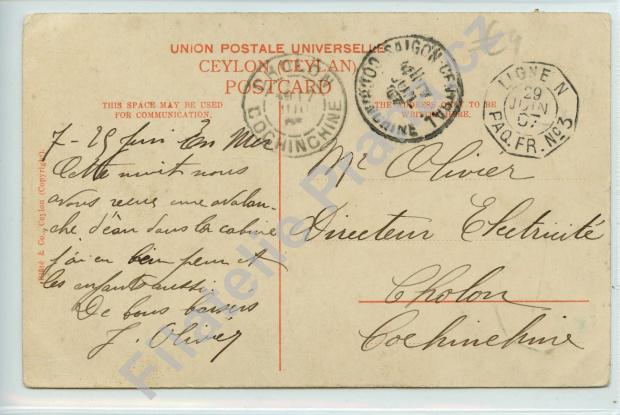 UNION POSTALE UNIVERSELLE
CEYLON (CEYLAN)
POSTCARD
THIS SPACE MAY BE USED
FOR COMMUNICATION.
THE ADDRESS ONLY TO BE
WRITTEN HERE.
CHOLON
COCHINCHINE
SAIGON-CENTRAL
COCHINCHINE
LIGNE N
29
JUIN
07
PAQ. FR. No 3
7 - 29 Juin En Mer
Cette nuit nous
avons recu une avalan-
che d'eau dans la cabine
j'ai eu bien peur et
les enfants aussi.
De bons baisers
J. Olivier
Mr Olivier
Directeur Electricité
Cholon
Cochinchine
& Co., Ceylon (Copyright).
Filatelie Praha.cz